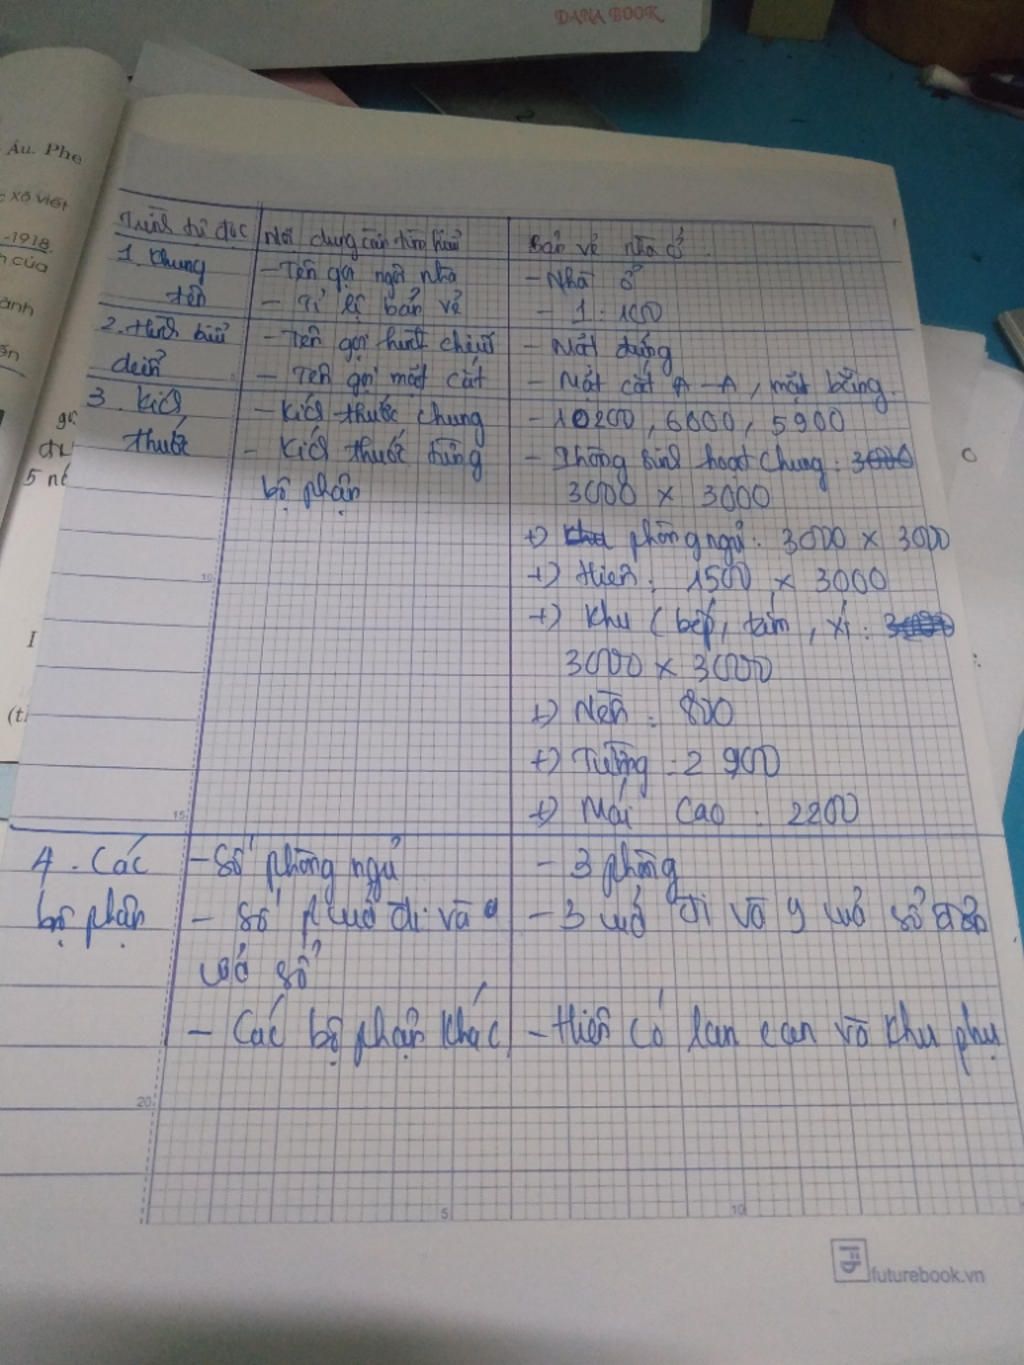 DANA BOOK
Âu. Phe
Xô viết
-1918.
n của
ành
5 nă
Trình tự đọc | Nội dung cần tìm hiểu | Bản vẽ nhà ở
1. Khung | - Tên gọi ngôi nhà | - Nhà ở
tên | - Tỉ lệ bản vẽ | - 1:100
2. Hình biểu | - Tên gọi hình chiếu | - Mặt đứng
diễn | - Tên gọi mặt cắt | - Mặt cắt A-A, mặt bằng.
3. Kích | - Kích thước chung | - 10200, 6000, 5900
thước | - Kích thước từng | - Phòng sinh hoạt chung:
bộ phận | 3000 x 3000
+) phòng ngủ: 3000 x 3000
+) Hiên: 1500 x 3000
+) Khu (bếp, tắm, xí:
3000 x 3000
+) Nền: 800
+) Tường: 2 900
+) Mái cao: 2200
4. Các | - Số phòng ngủ | - 3 phòng
bộ phận | - Số cửa đi và | - 3 cửa đi và 9 cửa sổ đơn
cửa sổ
- Các bộ phận khác | - Hiên có lan can và khu phụ
10
15
20
5
10
futurebook.vn